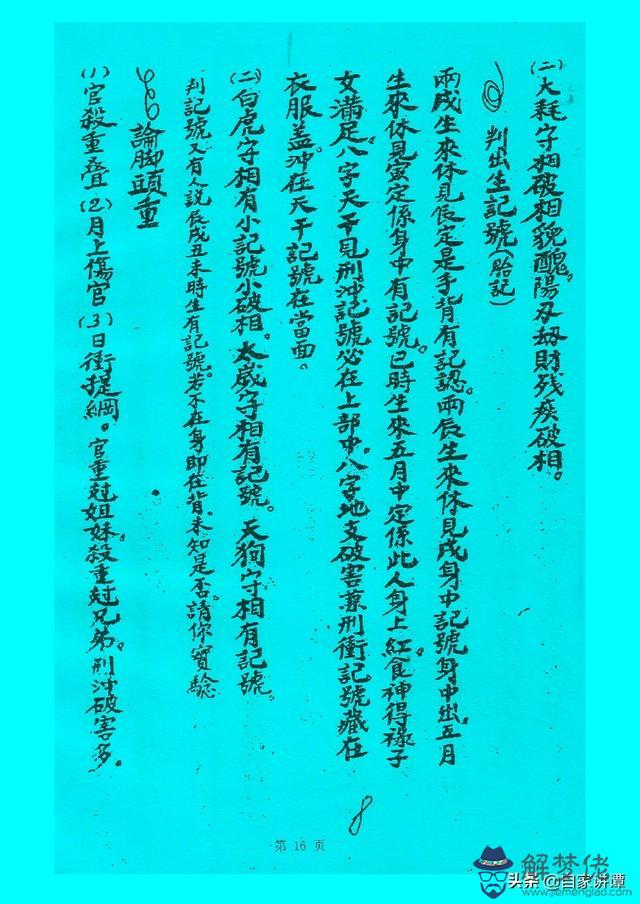 (二)大耗守相破相貌醜。陽刃劫財残疾破相。
判出生記號(胎記)
兩戌生來休見辰定是手背有記認。兩辰生來休見戌身中記號身中出。五月
生來休見寅定係身中有記號。巳時生來五月中定係此人身上紅。食神得祿子
女滿足。八字天干見刑沖記號必在上部中。八字地支破害兼刑衝記號藏在
衣服盖。沖在天干記號在當面。
(二)白虎守相有小記號小破相。太歲守相有記號。天狗守相有記號。
判記號又有人説辰戌丑未時生有記號。若不在身即在背。未知是否請你實驗
論脚頭重
(1)官殺重叠(2)月上傷官(3)日衝提綱。官重尅姐妹。殺重尅兄弟。刑沖破害多。
8
第 16 页
解梦佬
www.jiemenglao.com
头条 @自家讲谭